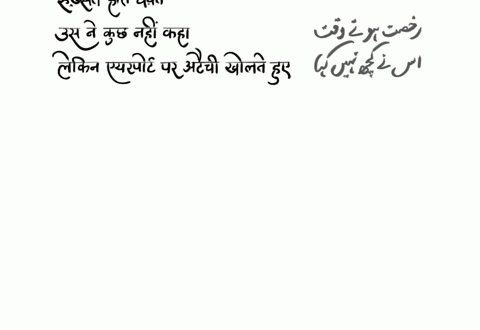 रुख़्सत होते वक़्त
उस ने कुछ नहीं कहा
लेकिन एयरपोर्ट पर अटैची खोलते हुए
رخصت ہوتے وقت
اس نے کچھ نہیں کہا